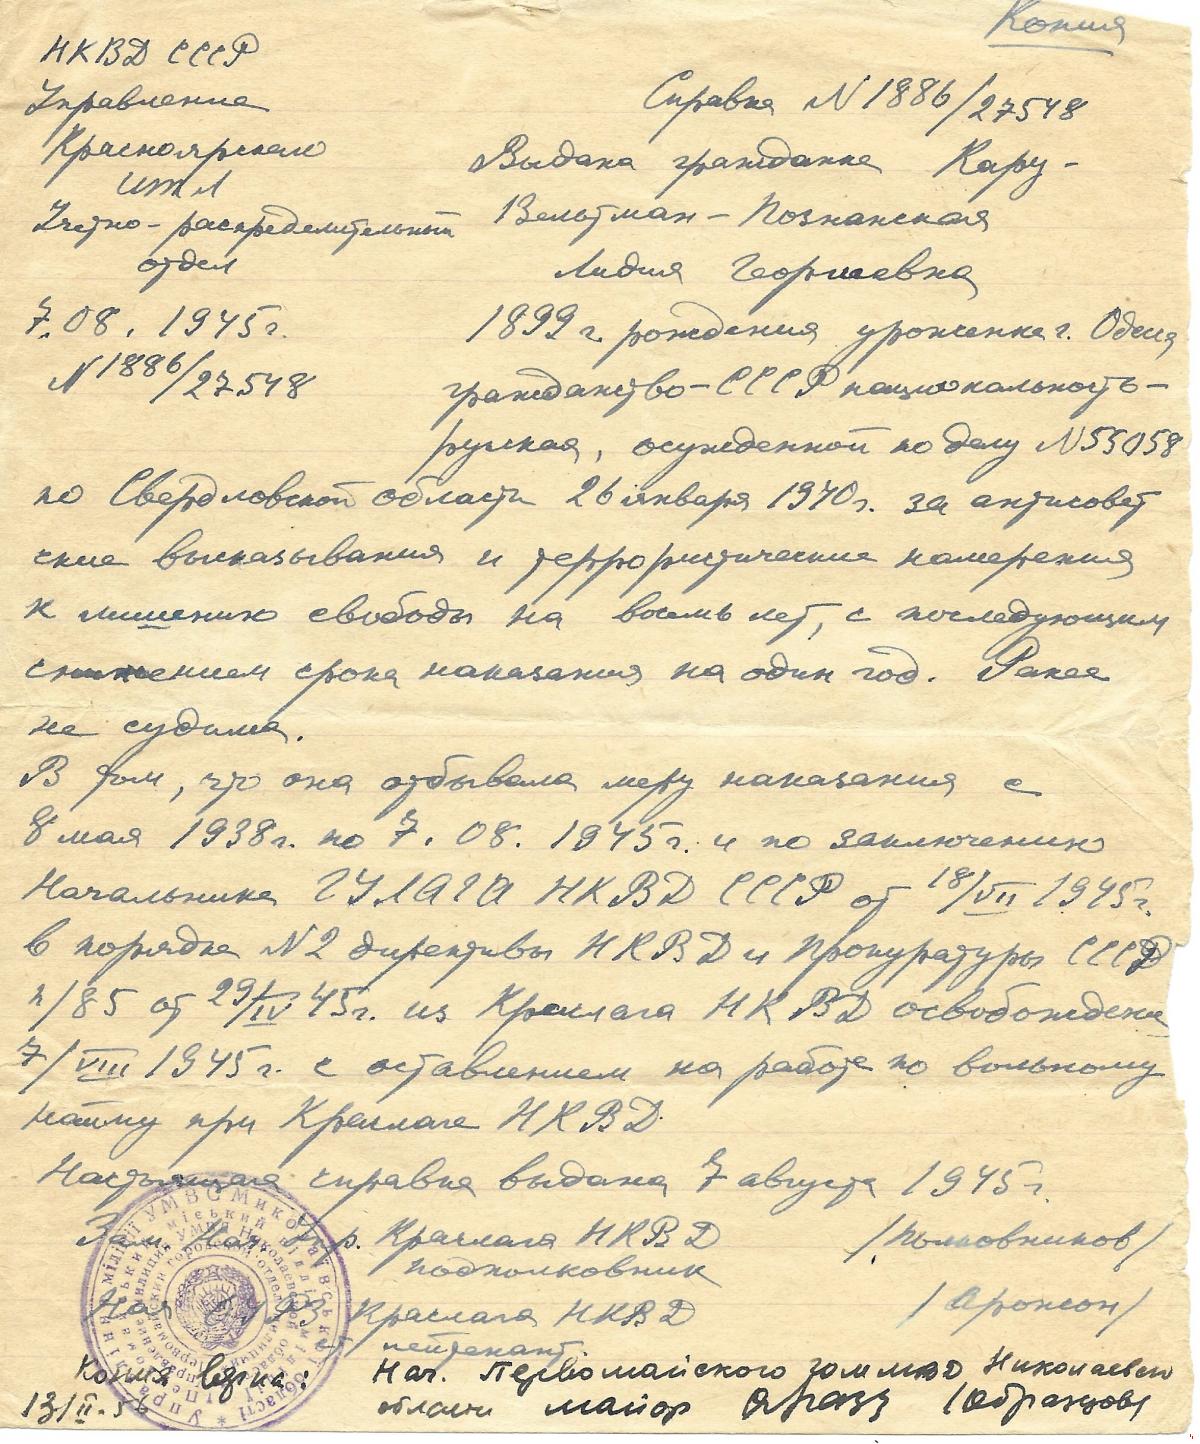 Копия
НКВД СССР
Управление
Красноярского
ИТЛ
Учетно-распределительный
отдел
7.08.1945г.
N1886/27548
Справка N1886/27548
Выдана гражданке Кару-
Вельтман-Познанская
Лидия Георгиевна
1899 г. рождения уроженке г. Одесса
гражданство-СССР национальность-
русская, осужденной по делу N55058
по Свердловской области 26 января 1940г. за антисовет
ские высказывания и террористические намерения
к лишению свободы на восемь лет, с последующим
снижением срока наказания на один год. Ранее
не судима.
В том, что она отбывала меру наказания с
8 мая 1938г. по 7.08.1945г. и по заключению
Начальника ГУЛАГА НКВД СССР от 18/VII 1945г.
в порядке N2 директивы НКВД и Прокуратуры СССР
н/85 от 29/IV 45г. из Краслага НКВД освобождена
7/VIII 1945г. с оставлением на работе по вольному
найму при Краслаге НКВД.
Настоящая справка выдана 7 августа 1945г.
Зам. Нач. Упр. Краслага НКВД /Полковников/
подполковник
Нач Краслага НКВД /Аронсон/
ст лейтенант.
Копия верна: Нач. Первомайского Николаевско
13/II-56 области майор /Образцов/